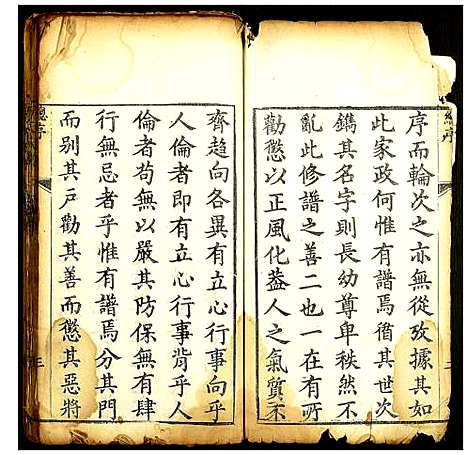 總序
序而輪次之亦無從攷據其如
此家政何惟有譜焉偹其世次
鐫其名字則長幼尊卑秩然不
亂此修譜之善二也一在有所
勸懲以正風化葢人之氣質不
齊趨向各異有立心行事向乎
人倫者即有立心行事背乎人
倫者苟無以嚴其防保無有肆
行無忌者乎惟有譜焉分其門
而别其戶勸其善而懲其惡將
總序
三